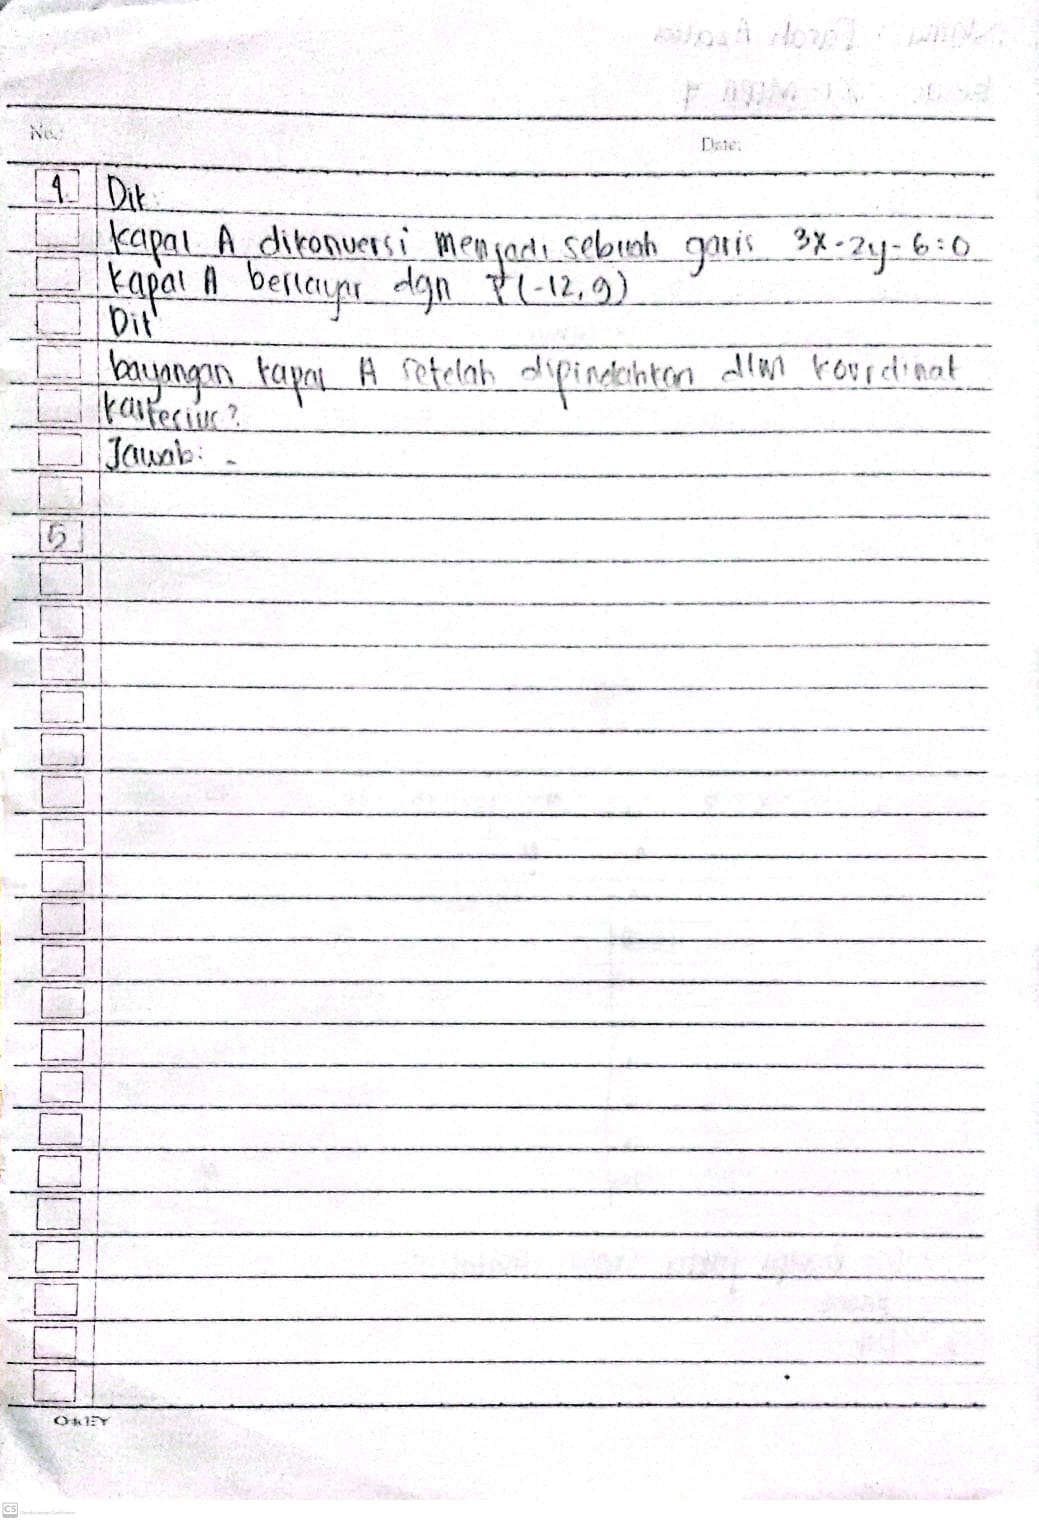 No.:
Date:
4. Dik:
Kapal A dikonversi menjadi sebuah garis 3x-2y-6=0
Kapal A berlayar dgn T(-12,9)
Dit
bayangan kapal A setelah dipindahkan dlm koordinat
kartesius?
Jawab: -
5
OKEY
CS